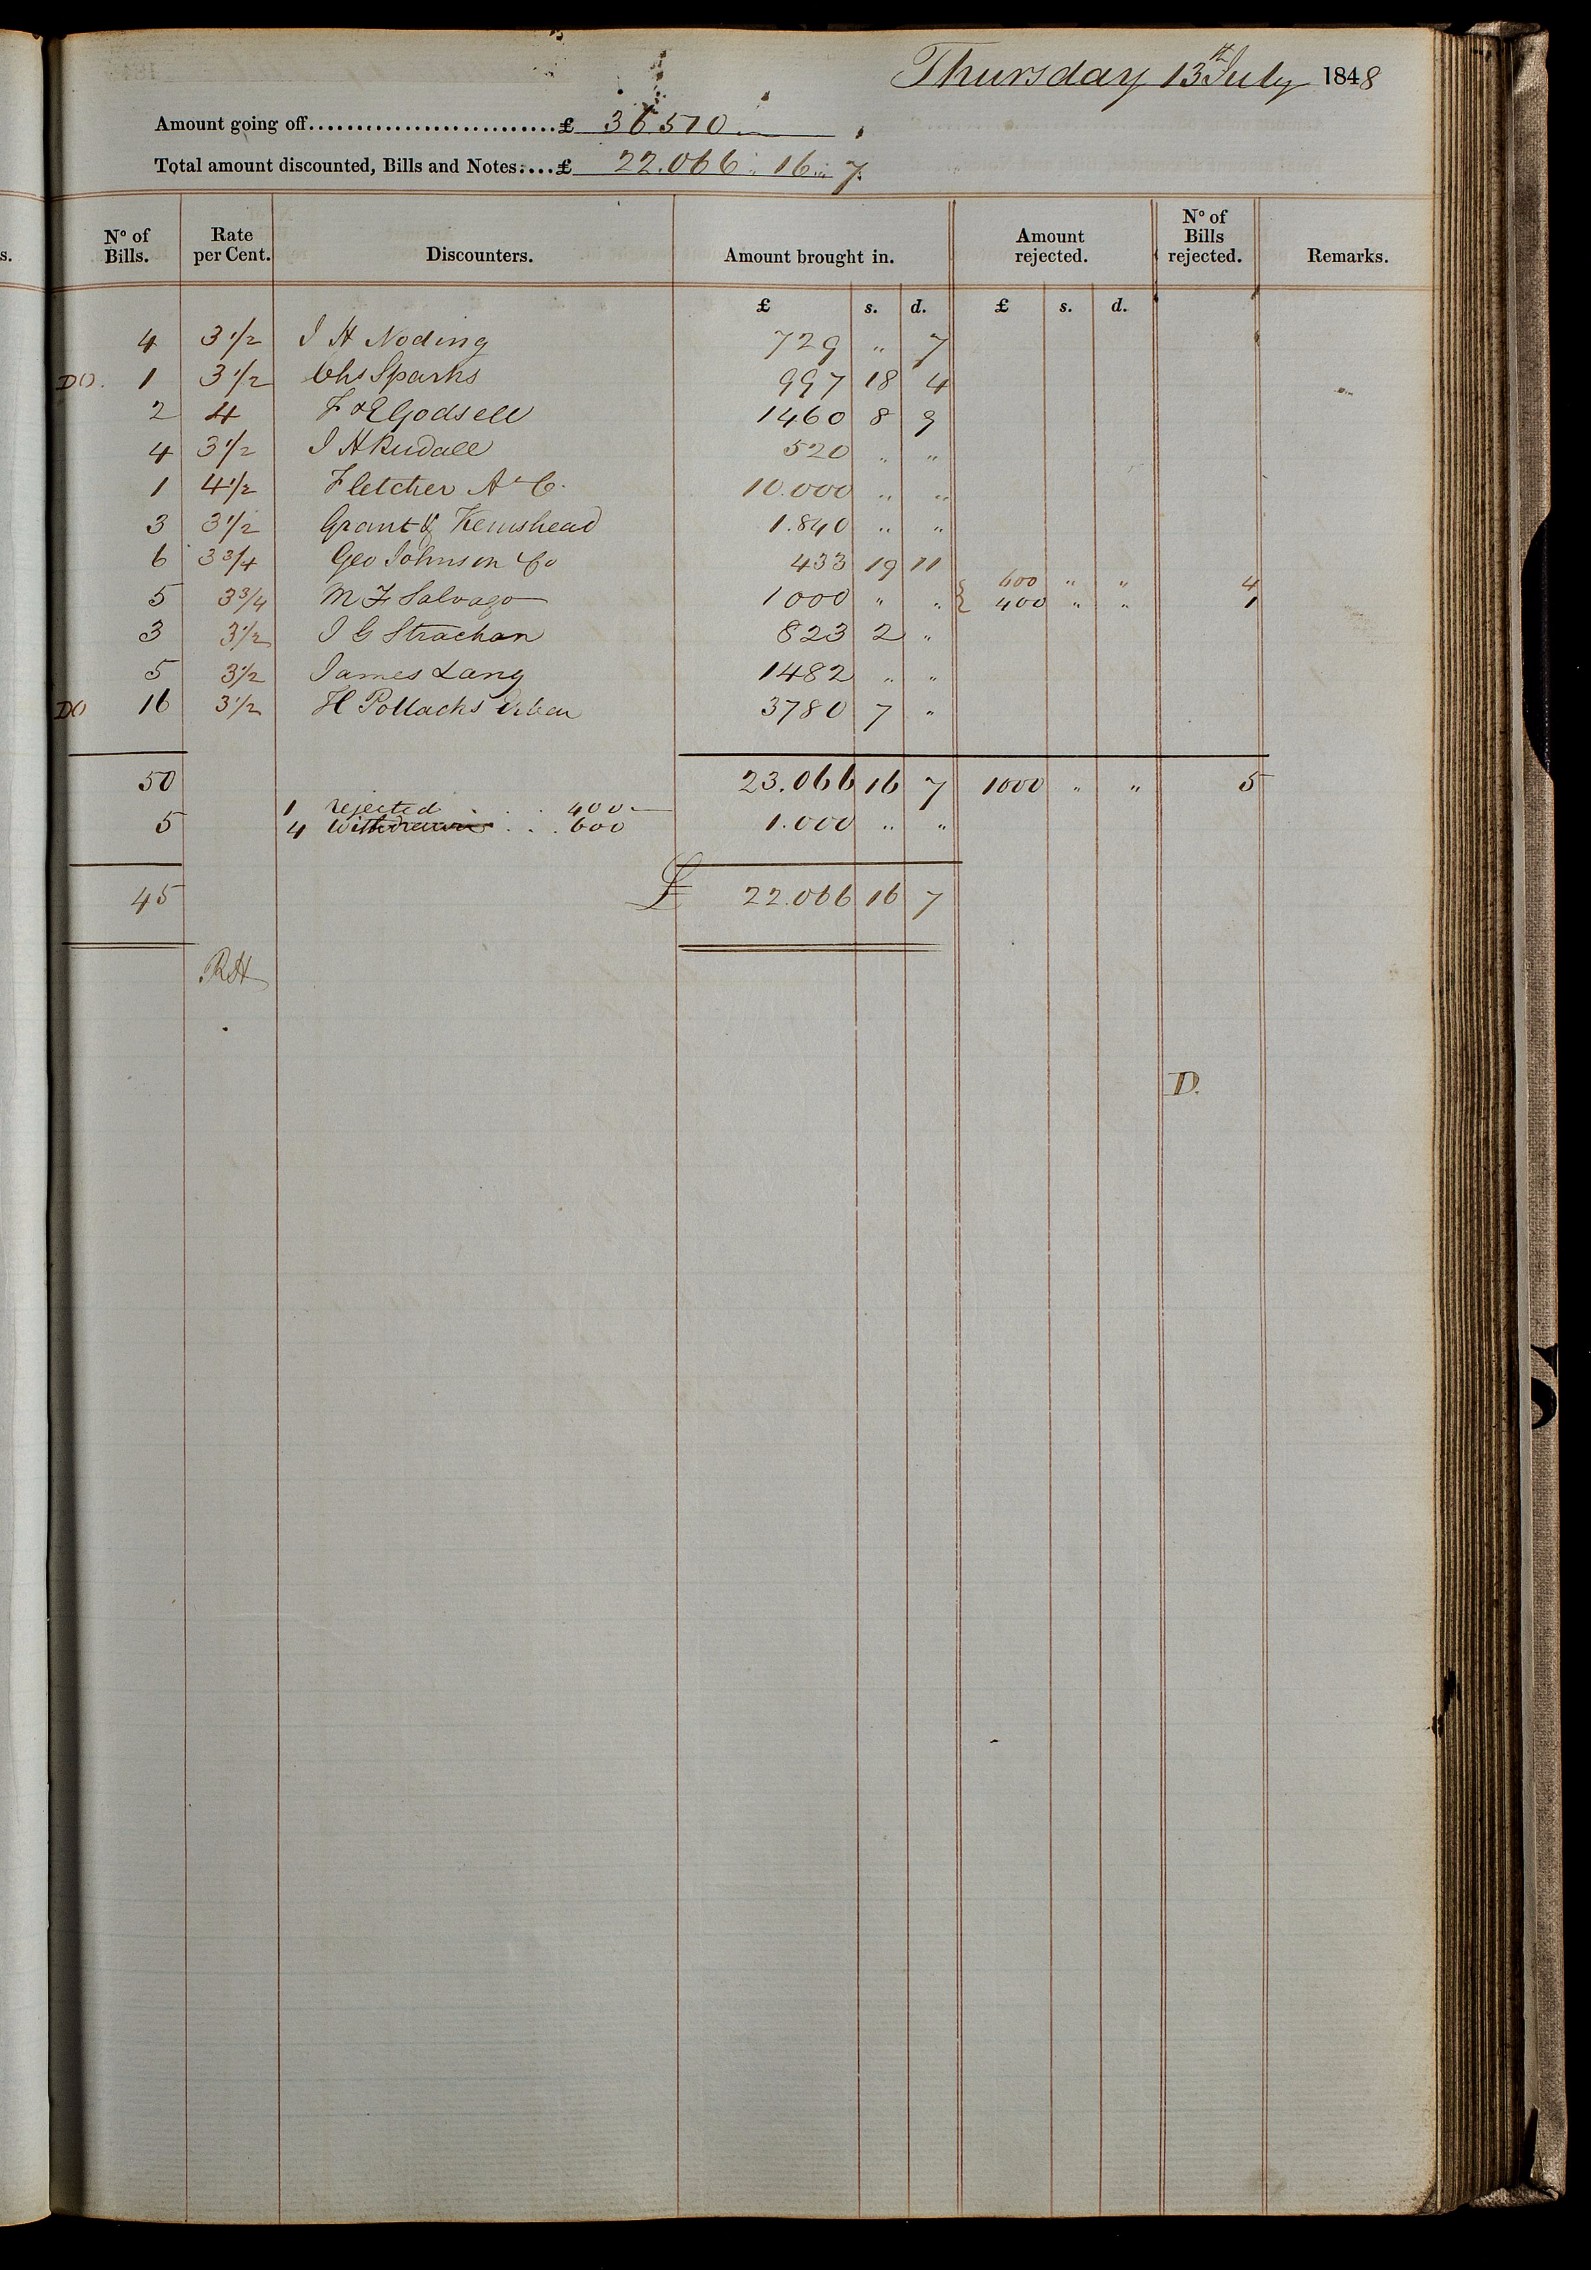 Thursday 13th July 1848
Amount going off..........................£ 36510
Total amount discounted, Bills and Notes:....£ 22.066 " 16 " 7
s.
No of Bills. Rate per Cent. Discounters. Amount brought in. Amount rejected. No of Bills rejected. Remarks.
£ s. d. £ s. d.
4 3 1/2 J H Noding 729 " 7
DO. 1 3 1/2 Chs Sparks 997 18 4
2 4 F & E Godsell 1460 8 9
4 3 1/2 J H Rudall 520 " "
1 4 1/2 Fletcher A & C. 10.000 " "
3 3 1/2 Grant & Kemshead 1.840 " "
6 3 3/4 Geo Johnson & Co 433 19 11
600 " " 4
5 3 3/4 M F Salvago 1000 " " { 400 " " 1
3 3 1/2 J G Strachan 823 2 "
5 3 1/2 James Lang 1482 " "
DO 16 3 1/2 H Pollacks 3780 7 "
50 23.066 16 7 1000 " " 5
1 rejected . . . 400
5 4 Withdrawn . . . 600 1.000 " "
45 £ 22.066 16 7
RH
D.